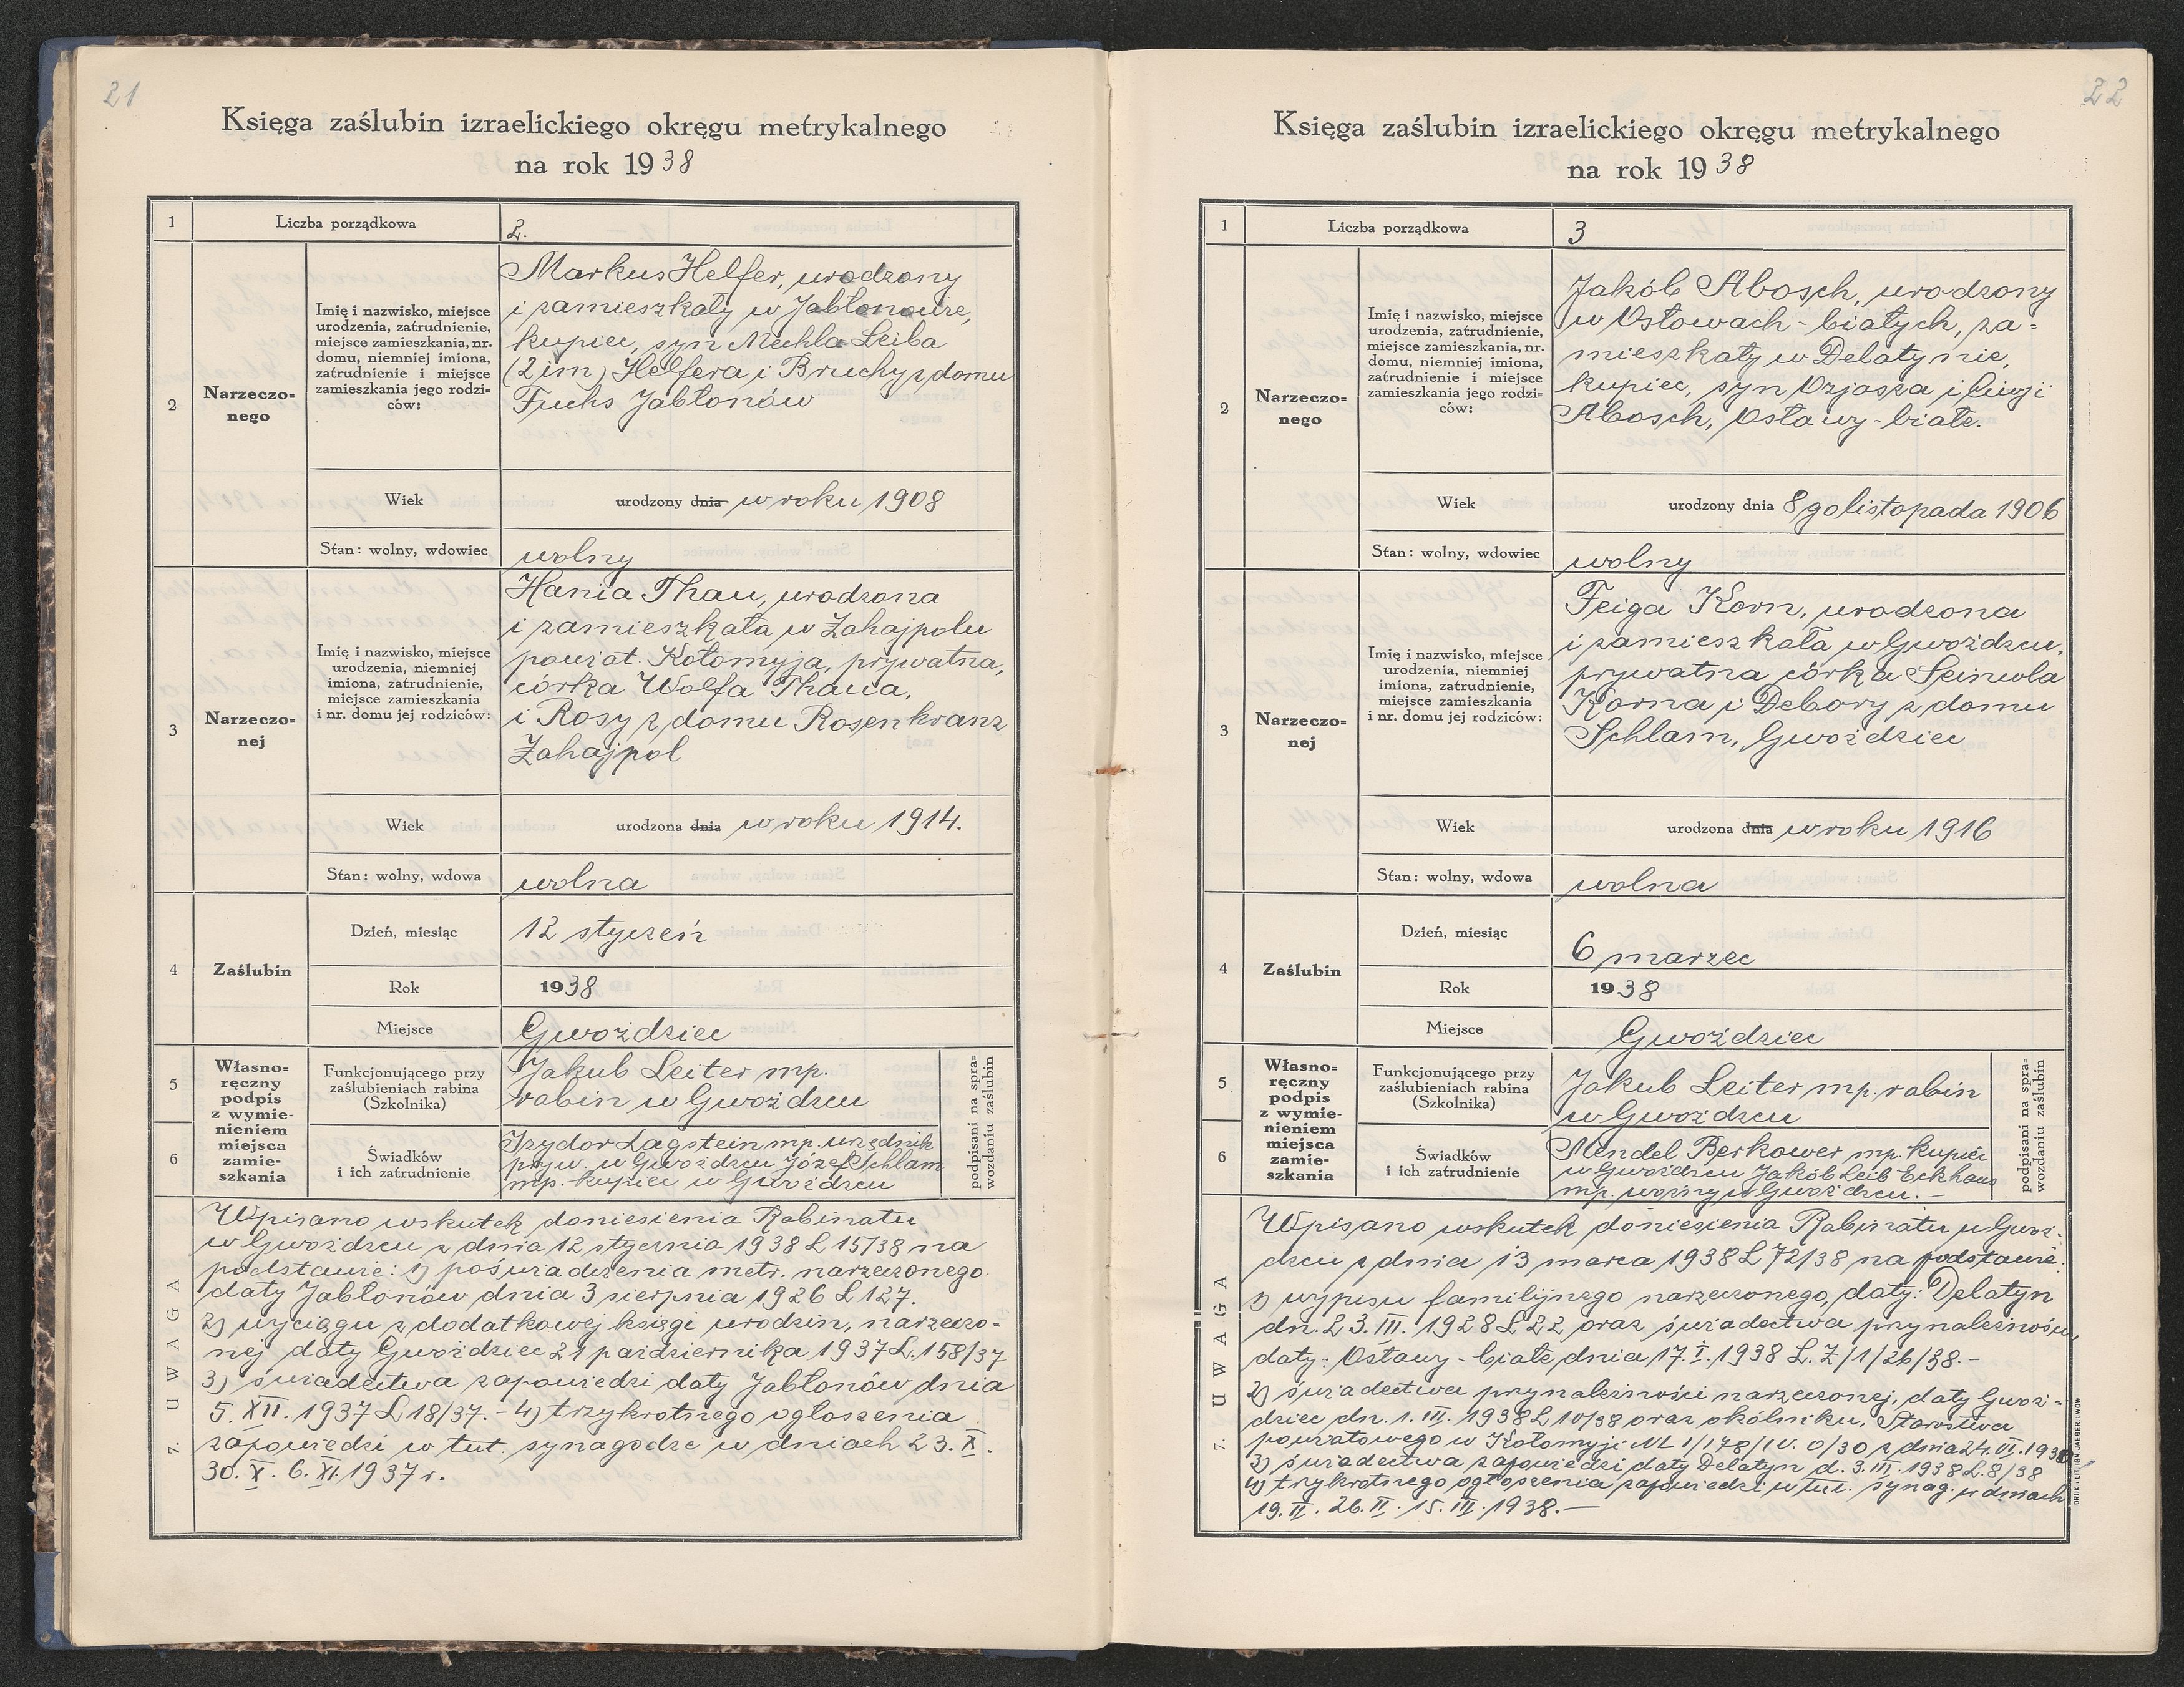 21
Księga zaślubin izraelickiego okręgu metrykalnego
na rok 1938
1
Liczba porządkowa
2.
2
Narzeczo=
nego
Imię i nazwisko, miejsce
urodzenia, zatrudnienie,
miejsce zamieszkania, nr.
domu, niemniej imiona,
zatrudnienie i miejsce
zamieszkania jego rodzi=
ców:
Markus Helfer, urodzony
i zamieszkały w Jabłonowie,
kupiec, syn Mechla Leiba
(2 im) Helfera i Bruchy z domu
Fuchs Jabłonów
Wiek
urodzony dnia w roku 1908
Stan: wolny, wdowiec
wolny
3
Narzeczo=
nej
Imię i nazwisko, miejsce
urodzenia, niemniej
imiona, zatrudnienie,
miejsce zamieszkania
i nr. domu jej rodziców:
Hania Thau, urodzona
i zamieszkała w Zahajpolu
powiat. Kołomyja, prywatna,
córka Wolfa Thaua,
i Rosy z domu Rosenkranz
Zahajpol
Wiek
urodzona dnia w roku 1914.
Stan: wolny, wdowa
wolna
4
Zaślubin
Dzień, miesiąc
12 styczeń
Rok
1938
Miejsce
Gwoździec
5
6
Własno=
ręczny
podpis
z wymie=
nieniem
miejsca
zamie=
szkania
Funkcjonującego przy
zaślubieniach rabina
(Szkolnika)
Jakub Leiter mp.
rabin w Gwoźdzcu
Świadków
i ich zatrudnienie
Izydor Lagstein mp. urzędnik
pryw. w Gwoźdzcu Józef Schlam
mp. kupiec w Gwoźdzcu
podpisani na spra=
wozdaniu zaślubin
7. UWAGA
Wpisano wskutek doniesienia Rabinatu
w Gwoźdzcu z dnia 12 stycznia 1938 L 15/38 na
podstawie: 1) poświadczenia metr. narzeczonego
daty Jabłonów dnia 3 sierpnia 1926 L 127.
2) wyciągu z dodatkowej księgi urodzin, narzeczo-
nej daty Gwoździec 21 października 1937 L. 158/37
3) świadectwa zapowiedzi daty Jabłonów dnia
5. XII. 1937 L 18/37. - 4) trzykrotnego ogłoszenia
zapowiedzi w tut. synagodze w dniach 23. X.
30. X. 6. XI. 1937 r.
22
Księga zaślubin izraelickiego okręgu metrykalnego
na rok 1938
1
Liczba porządkowa
3
2
Narzeczo=
nego
Imię i nazwisko, miejsce
urodzenia, zatrudnienie,
miejsce zamieszkania, nr.
domu, niemniej imiona,
zatrudnienie i miejsce
zamieszkania jego rodzi=
ców:
Jakób Abosch, urodzony
w Osławach-białych, za=
mieszkały w Delatynie,
kupiec, syn Ozjasza i Ciwji
Abosch, Osławy-białe.
Wiek
urodzony dnia 8go listopada 1906
Stan: wolny, wdowiec
wolny
3
Narzeczo=
nej
Imię i nazwisko, miejsce
urodzenia, niemniej
imiona, zatrudnienie,
miejsce zamieszkania
i nr. domu jej rodziców:
Feiga Korn, urodzona
i zamieszkała w Gwoźdzcu,
prywatna córka Seinwla
Korna i Debory z domu
Schlam, Gwoździec
Wiek
urodzona dnia w roku 1916
Stan: wolny, wdowa
wolna
4
Zaślubin
Dzień, miesiąc
6 marzec
Rok
1938
Miejsce
Gwoździec
5
6
Własno=
ręczny
podpis
z wymie=
nieniem
miejsca
zamie=
szkania
Funkcjonującego przy
zaślubieniach rabina
(Szkolnika)
Jakub Leiter mp. rabin
w Gwoźdzcu
Świadków
i ich zatrudnienie
Mendel Berkower mp. kupiec
w Gwoźdzcu Jakób Leib Eckhaus
mp. woźny w Gwoźdzcu. -
podpisani na spra=
wozdaniu zaślubin
7. UWAGA
Wpisano wskutek doniesienia Rabinatu w Gwoź-
dzcu z dnia 13 marca 1938 L 72/38 na podstawie:
1) wypisu familijnego narzeczonego, daty: Delatyn
dn. 23. III. 1928 L 22 oraz świadectwa przynależności,
daty: Osławy-białe dnia 17. I. 1938 L. Z/1/26/38. -
2) świadectwa przynależności narzeczonej, daty Gwoź-
dziec dn. 1. III. 1938 L 10/38 oraz okólniku, Starostwa
powiatowego w Kołomyji NL 1/178/IV. 0/30 z dnia 24. VI. 1930
3) świadectwa zapowiedzi daty Delatyn d. 3. III. 1938 L. 8/38
4) trzykrotnego ogłoszenia zapowiedzi w tut. synag. w dniach
19. II. 26. II. 15. III. 1938. -
DRUK. I LIT. IGN. JAEGER. LWÓW